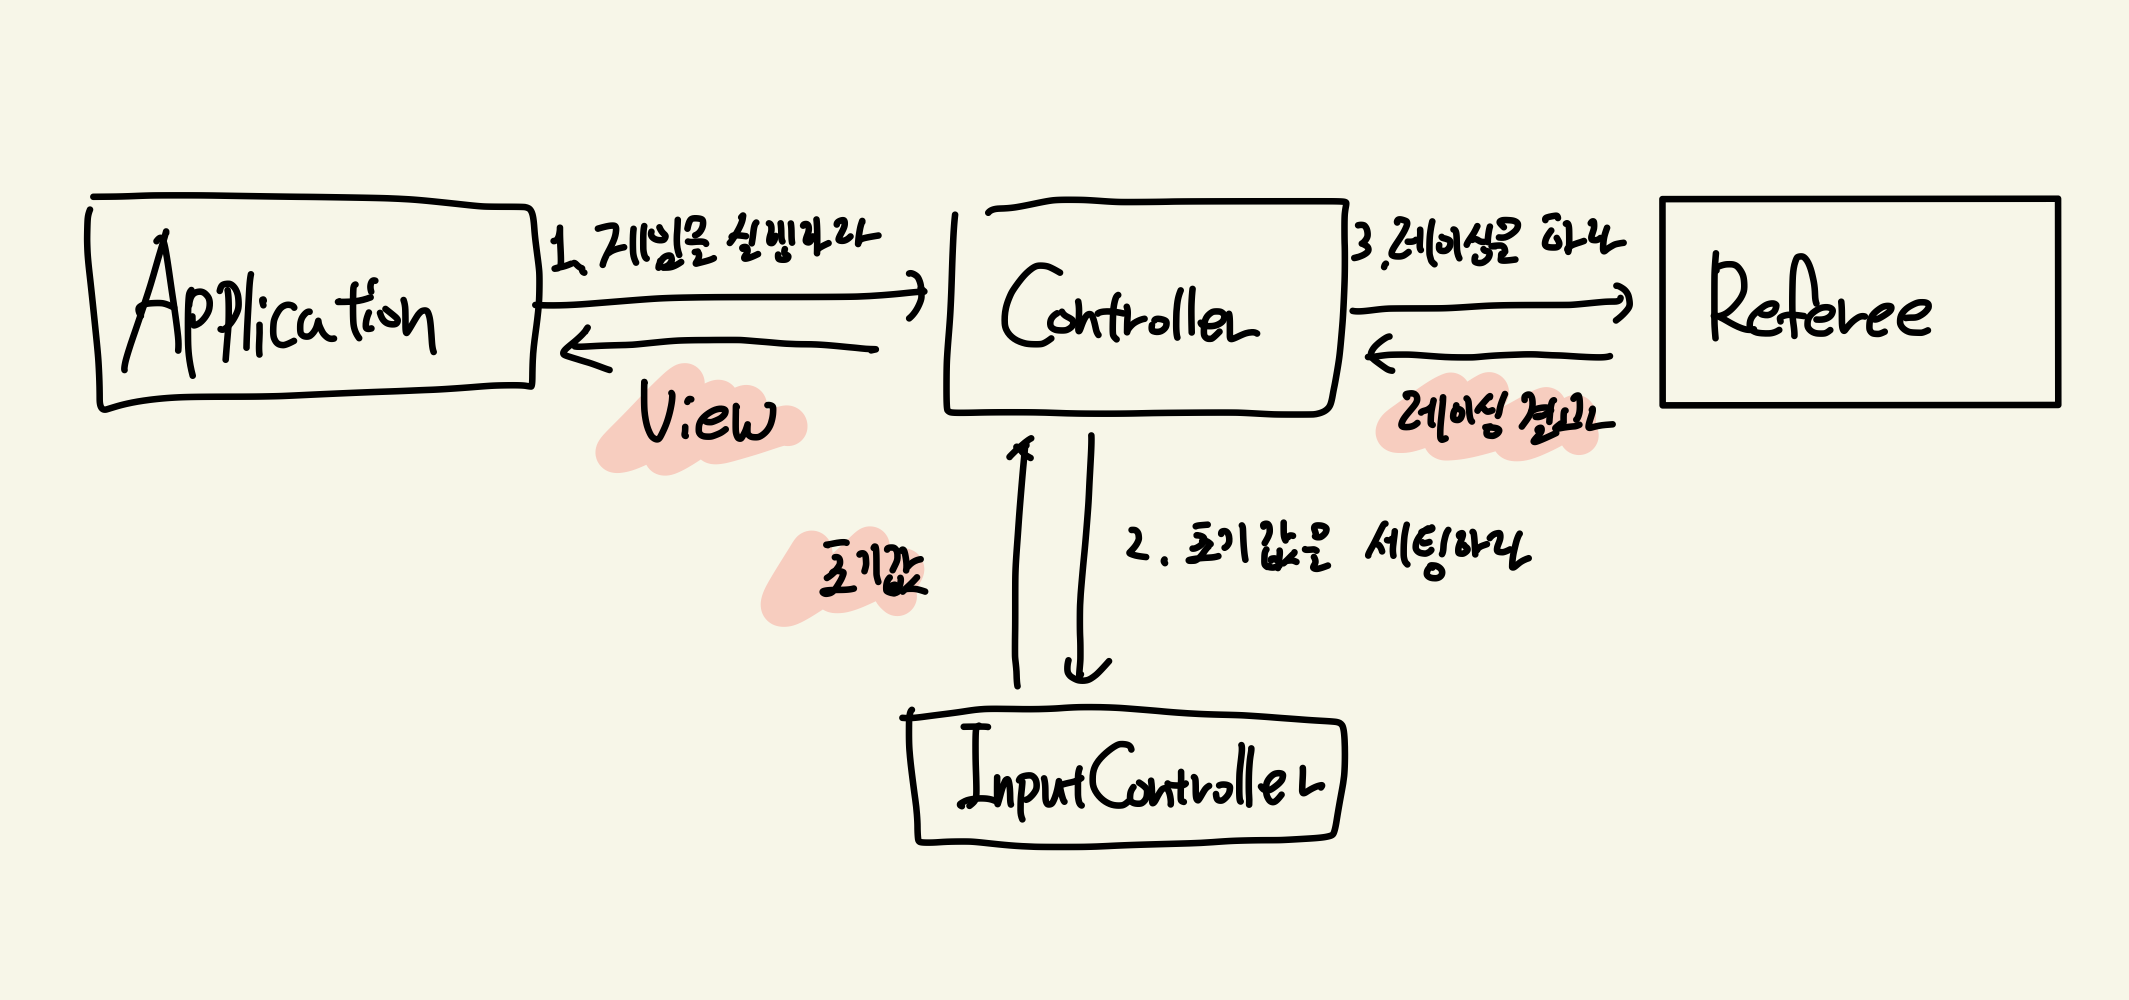 Application
1. 게임을 실행하라
View
Controller
3. 레이싱을 하라
레이싱 결과
Referee
초기값
2. 초기값을 세팅하라
InputController